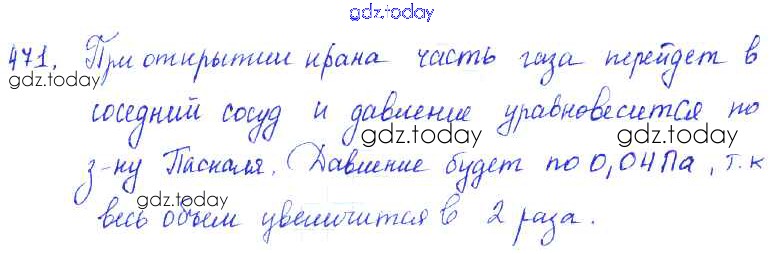 gdz.today
471. При открытии крана часть газа перейдет в
gdz.today
соседний сосуд и давление уравновесится по
gdz.today
gdz.today
з-ну Паскаля. Давление будет по 0,04 Па, т.к
весь объем увеличится в 2 раза.
gdz.today